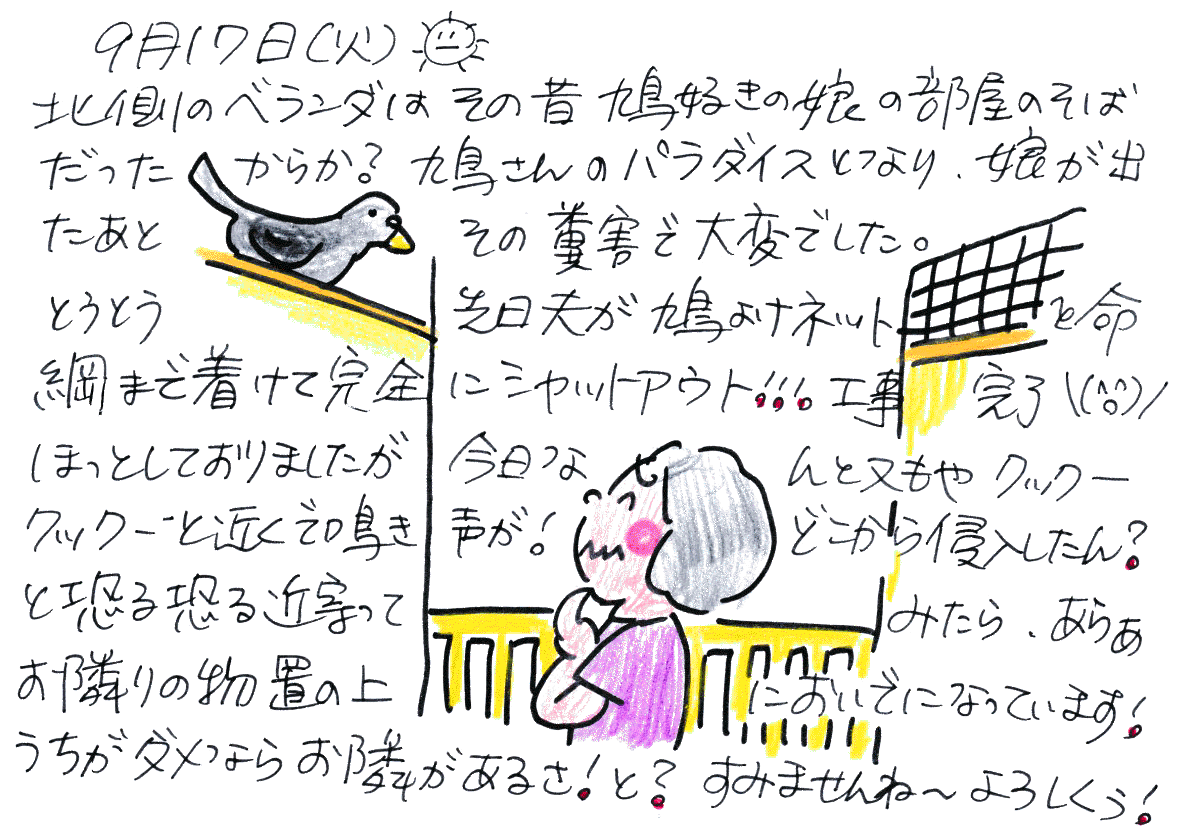 9月17日(火)
北側のベランダは その昔 鳩好きの娘の部屋のそば
だった からか? 鳩さんのパラダイスとなり、娘が出
たあと その糞害で大変でした。
とうとう 先日夫が鳩よけネットを命
綱まで着けて完全にシャットアウト!!! 工事 完了 \(^o^)/
ほっとしておりましたが 今日なんと又もや クックー
クックーと近くで鳴き声が! どこから侵入したん?
と恐る恐る近寄って みたら、あらぁ
お隣りの物置の上 においでになっています!
うちがダメならお隣があるさ!と? すみませんね〜よろしくぅ!